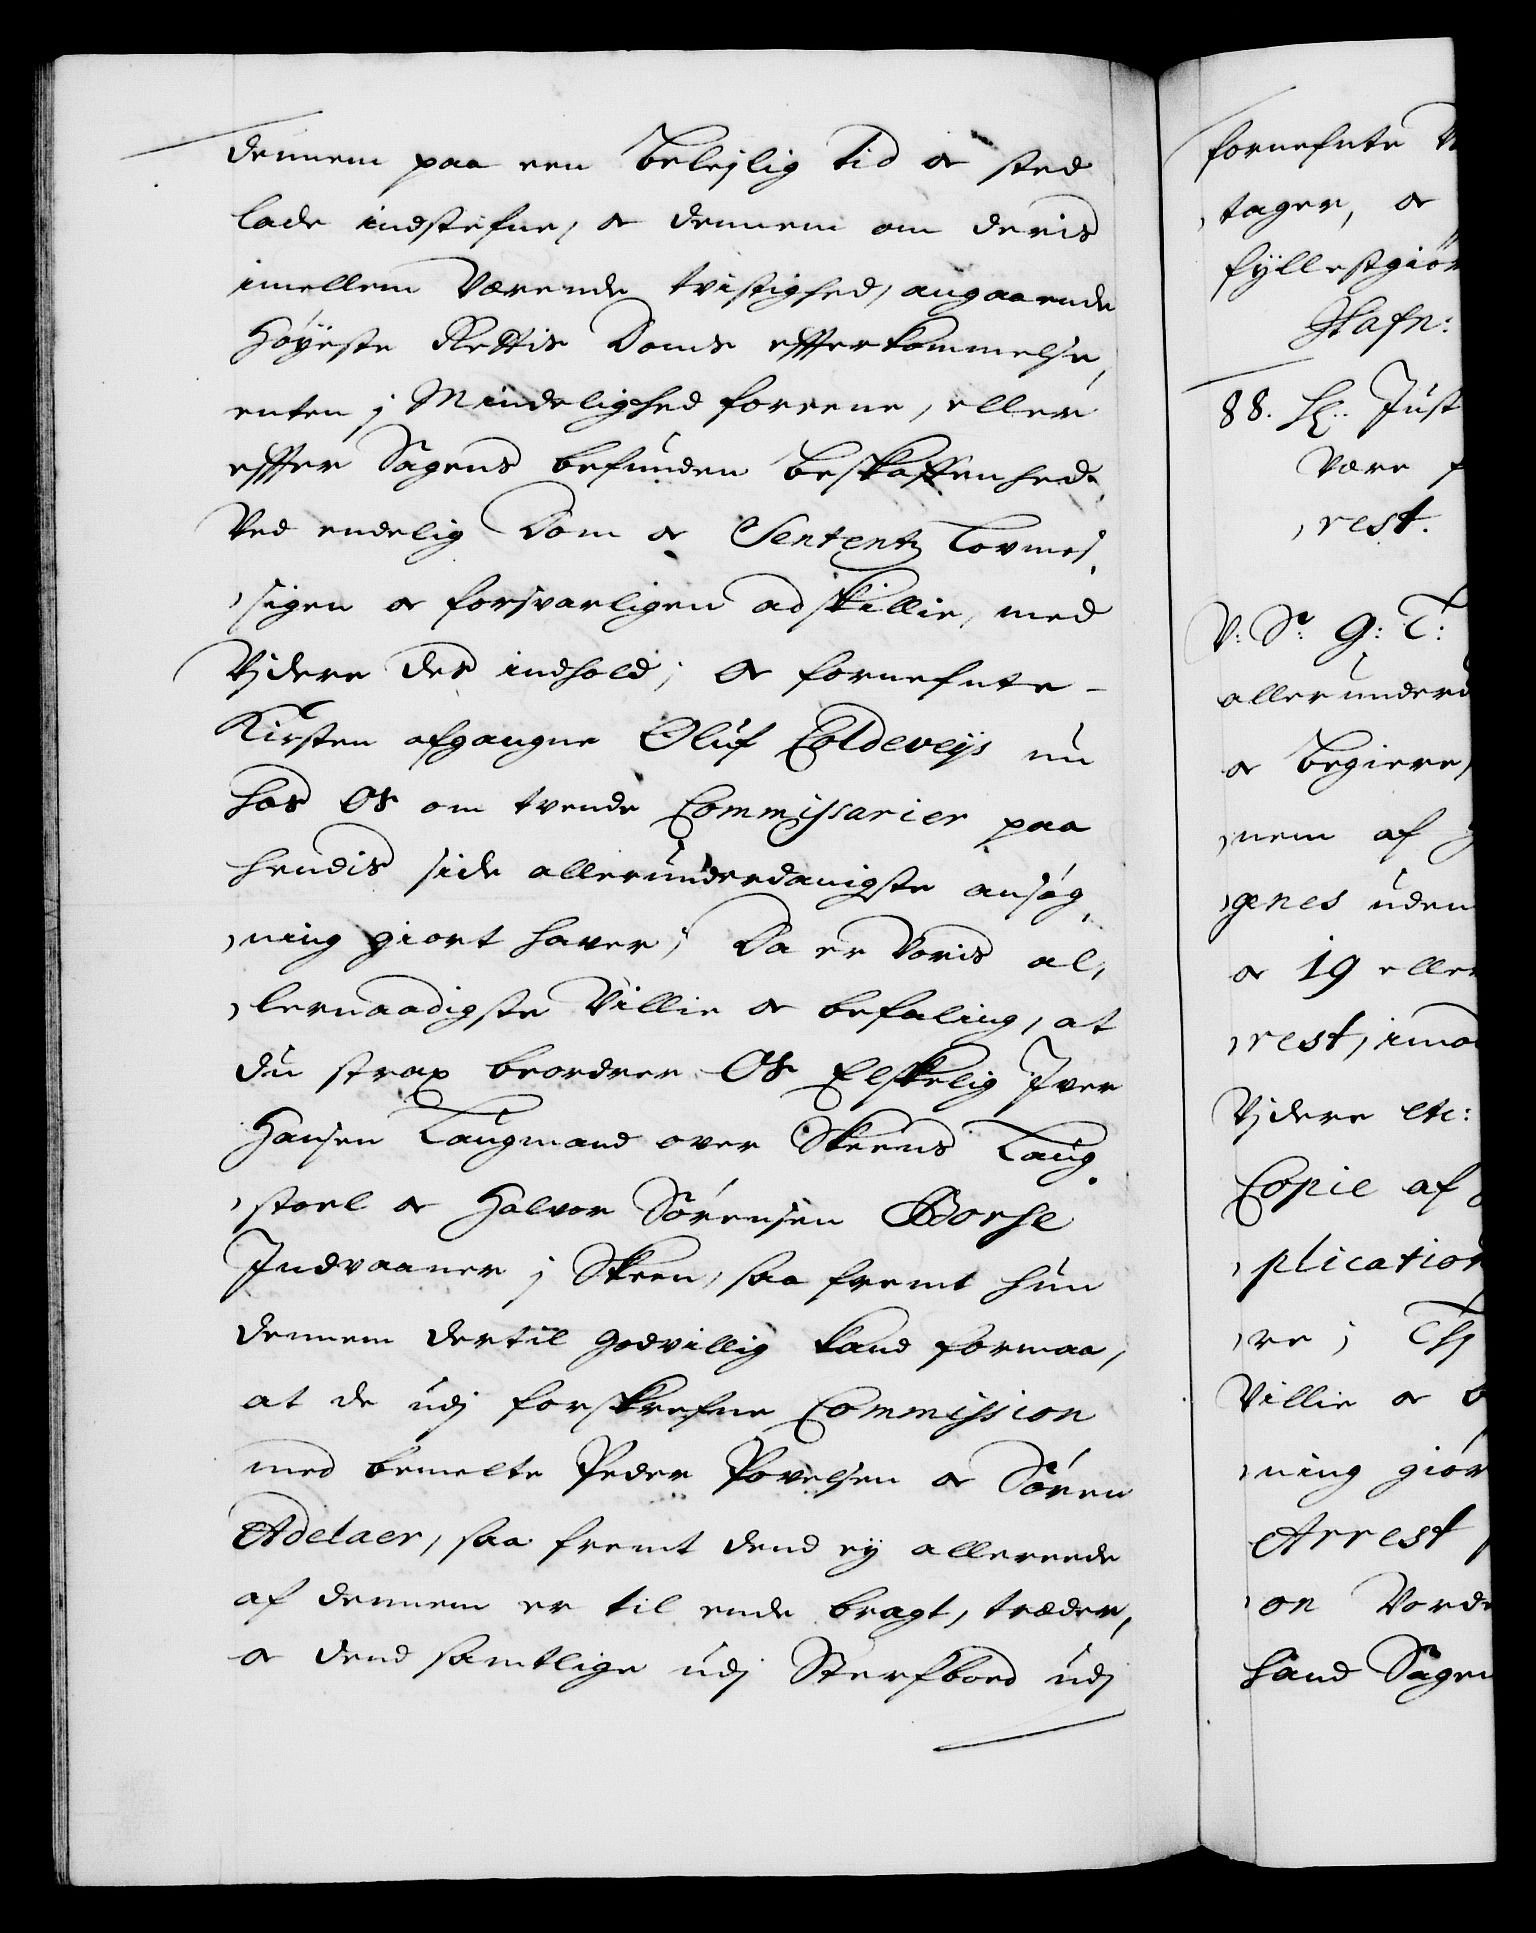 dennem paa een belejlig tid oc sted
lade indstefne, oc dennem om deris
imellem værende tvistighed, angaaende
Høyeste Rettis Doms effterkommelse,
enten j Mindelighed foreene, eller
effter Sagens befunden beskaffenhed,
Ved endelig Dom oc Sententz Lovmes,
,sigen oc forsvarligen adskillie, med
Vjdere des indhold; Oc fornefnte
Kirsten afgangne Oluf Coldeveys nu
hos Os om tvende Commissarier paa
hendis side allerunderdanigste ansøg,
,ning giort haver; Da er Voris al,
,lernaadigste Villie oc befaling, at
du strax beordrer Os Elskelig Jver
Hansen Laugmand over Skeens Laug,
,stoel oc Halvor Sørensen Borse
Indvaaner j Skeen, saa fremt hun
dennem dertil godvillig kand formaa,
at de udj forskrefne Commission
med bemelte Peder Povelsen oc Søren
Adelaer, saa fremt dend ey allereede
af dennem er til ende bragt, træder,
oc dend samtlige udj Sterfboed udj
fornefnte
,tager, oc
fyllestgiør
Hafn:
88. Sl: Just
Være
,rest.
V: Sr: G: T:
allerunderd
oc begiere,
,nem af
,genes uden
oc 19 eller
,rest, imod
Vjdere etc:
Copie af
,plication
,re; Thj
Villie oc b
,ning giør
Arrest
,on Vorde
hand Sagen